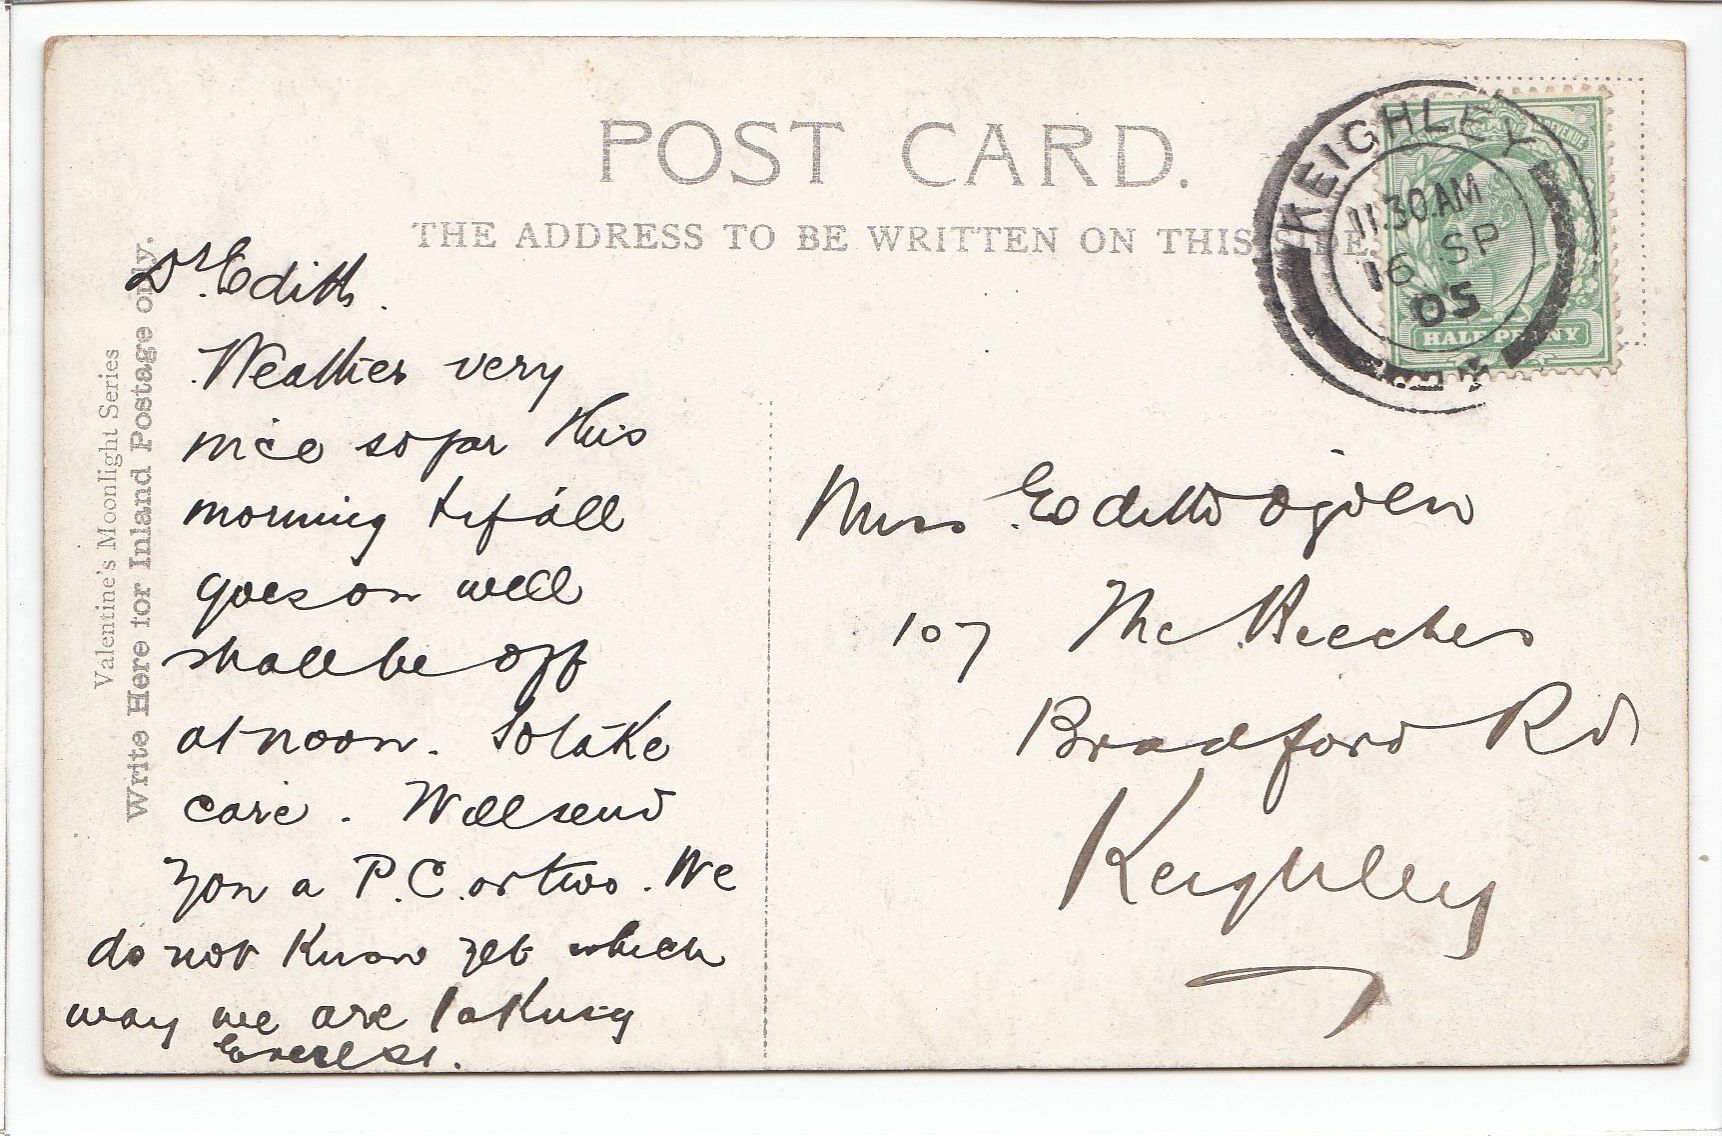 POST CARD.
THE ADDRESS TO BE WRITTEN ON THIS SIDE.
Valentine's Moonlight Series
Write Here for Inland Postage only.
KEIGHLEY
11.30 AM
16 SP
05
HALF PENNY
Dr. Edith.
Weather very
nice so far this
morning & if all
goes on well
shall be off
at noon. So take
care. Will send
you a P.C. or two. We
do not know yet which
way we are taking
Miss Edith Ogden
107 The Beeches
Bradford Rd
Keighley